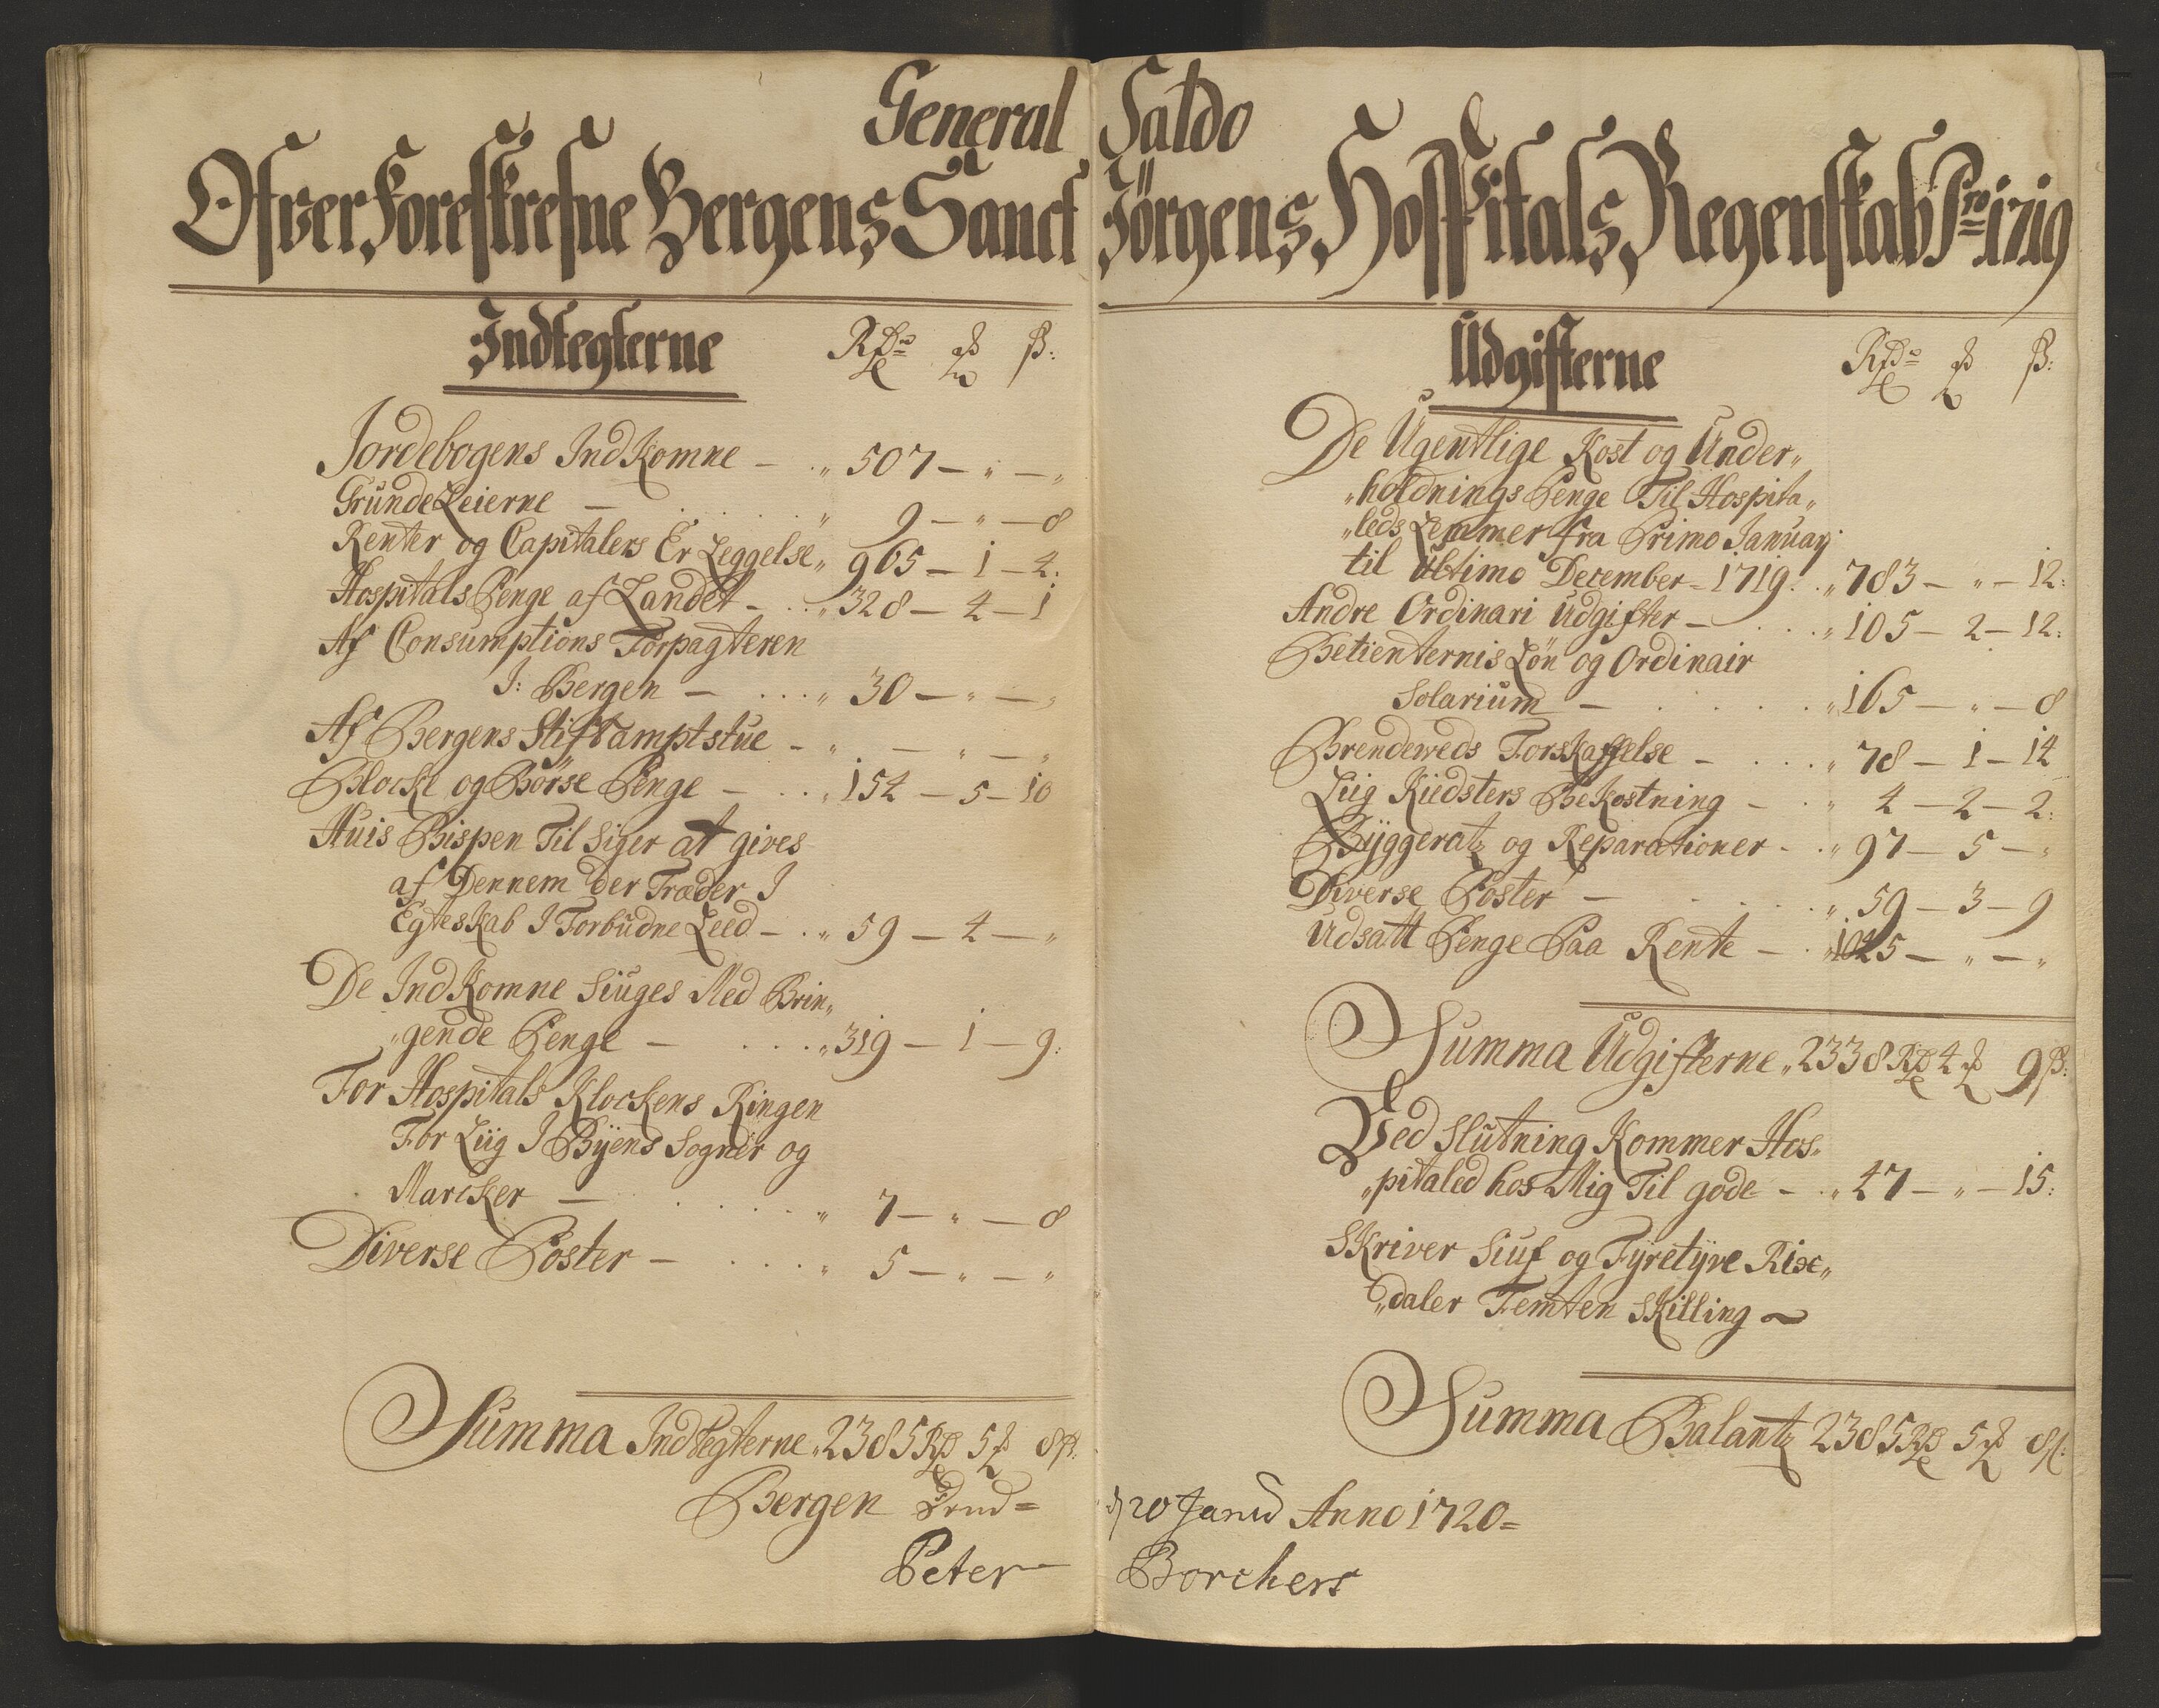 General Saldo
Ofver Foreskrefne Bergens Sanct Jörgens Hospitals Regenskab Pro 1719
Indtegterne Rdr ℳ ß:
Jordebogens IndKomne — „ 507 — „ — „
GrundeLeierne — „ 9 — „ — 8
Renter og Capitalers ErLeggelse „ 965 — 1 — 4:
Hospitals Penge af Landet — „ 328 — 4 — 1
Af Consumptions Forpagteren
I: Bergen — „ 30 — „ — „
Af Bergens Stiftamptstue — „ — „ — „
Block og Börse Penge — „ 154 — 5 — 10
Huis Bispen Til Siger at gives
af Dennem der Træder I
Egteskab I Forbudne Leed — „ 59 — 4 — „
De IndKomne Siuges Med Brin„
„gende Penge — „ 319 — 1 — 9:
For Hospitals Klockens Ringen
For Liig I Byens Sogner og
Marcker — „ 7 — „ — 8
Diverse Poster — „ 5 — „ — „
Summa Indtegterne „ 2385 Rd 5 ℳ 8 ß:
Udgifterne Rdr ℳ ß:
De Ugentlige Kost og Under„
„holdnings Penge Til Hospita„
„leds Lemmer fra Primo Januarÿ
til Ultimo December — 1719 „ 783 — „ — 12:
Andre Ordinari Udgifter — „ 105 — 2 — 12:
Betienternis Lön og Ordinair
Solarium — „ 165 — „ — 8
Brendeweds Forskaffelse — „ 78 — 1 — 14
Liig Kiedsters BeKostning — „ 4 — 2 — 2:
Byggeratz og Reparationer — „ 97 — 5 — „
Diverse Poster — „ 59 — 3 — 9
Udsatt Penge Paa Rente — „ 1045 — „ — „
Summa Udgifterne „ 2338 Rd 4 ℳ 9 ß:
Ved Slutning Kommer Hos„
„pitaled hos Mig Til gode — „ 47 — „ — 15:
Skriver Siuf og Fyretyve Rix„
„daler Femten Skilling ~
Summa Balantz 2385 Rd 5 ℳ 8 ß:
Bergen d 20 Janu Anno 1720=
Peter Borchers